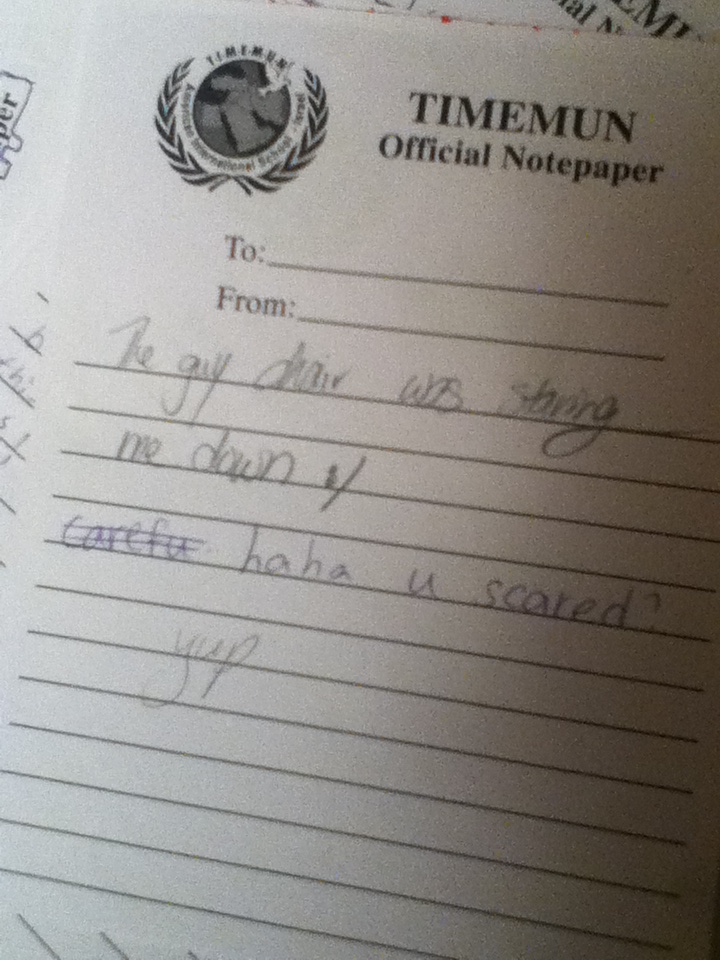 TIMEMUN
American International School - Israel
TIMEMUN
Official Notepaper
To:
From:
The guy chair was staring
me down
carefu haha u scared?
yup